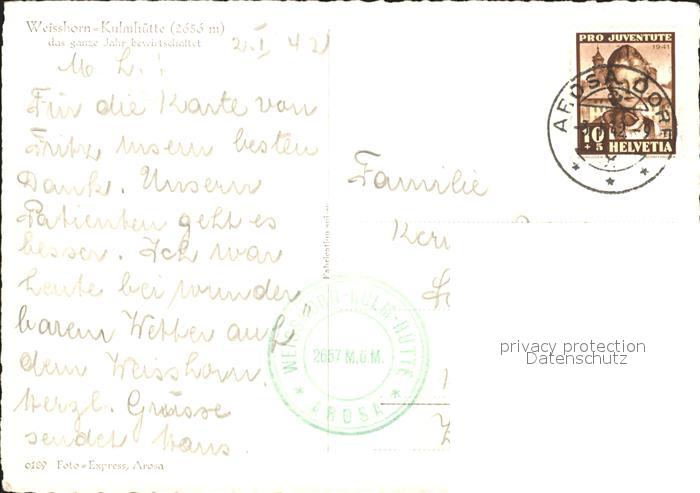 Weisshorn-Kulmhütte (2656 m)
das ganze Jahr bewirtschaftet
2. I. 42
M. L.!
Für die Karte von
Fritz unsern besten
Dank. Unsern
Patienten geht es
besser. Ich war
heute bei wunder
barem Wetter auf
dem Weisshorn.
Herzl. Grüsse
sendet Hans.
0189 Foto-Express, Arosa
PRO JUVENTUTE
1941
10
+5 HELVETIA
AROSA DORF
Familie
WEISSHORN-KULM-HÜTTE
2657 M.Ü.M.
* AROSA *
privacy protection
Datenschutz